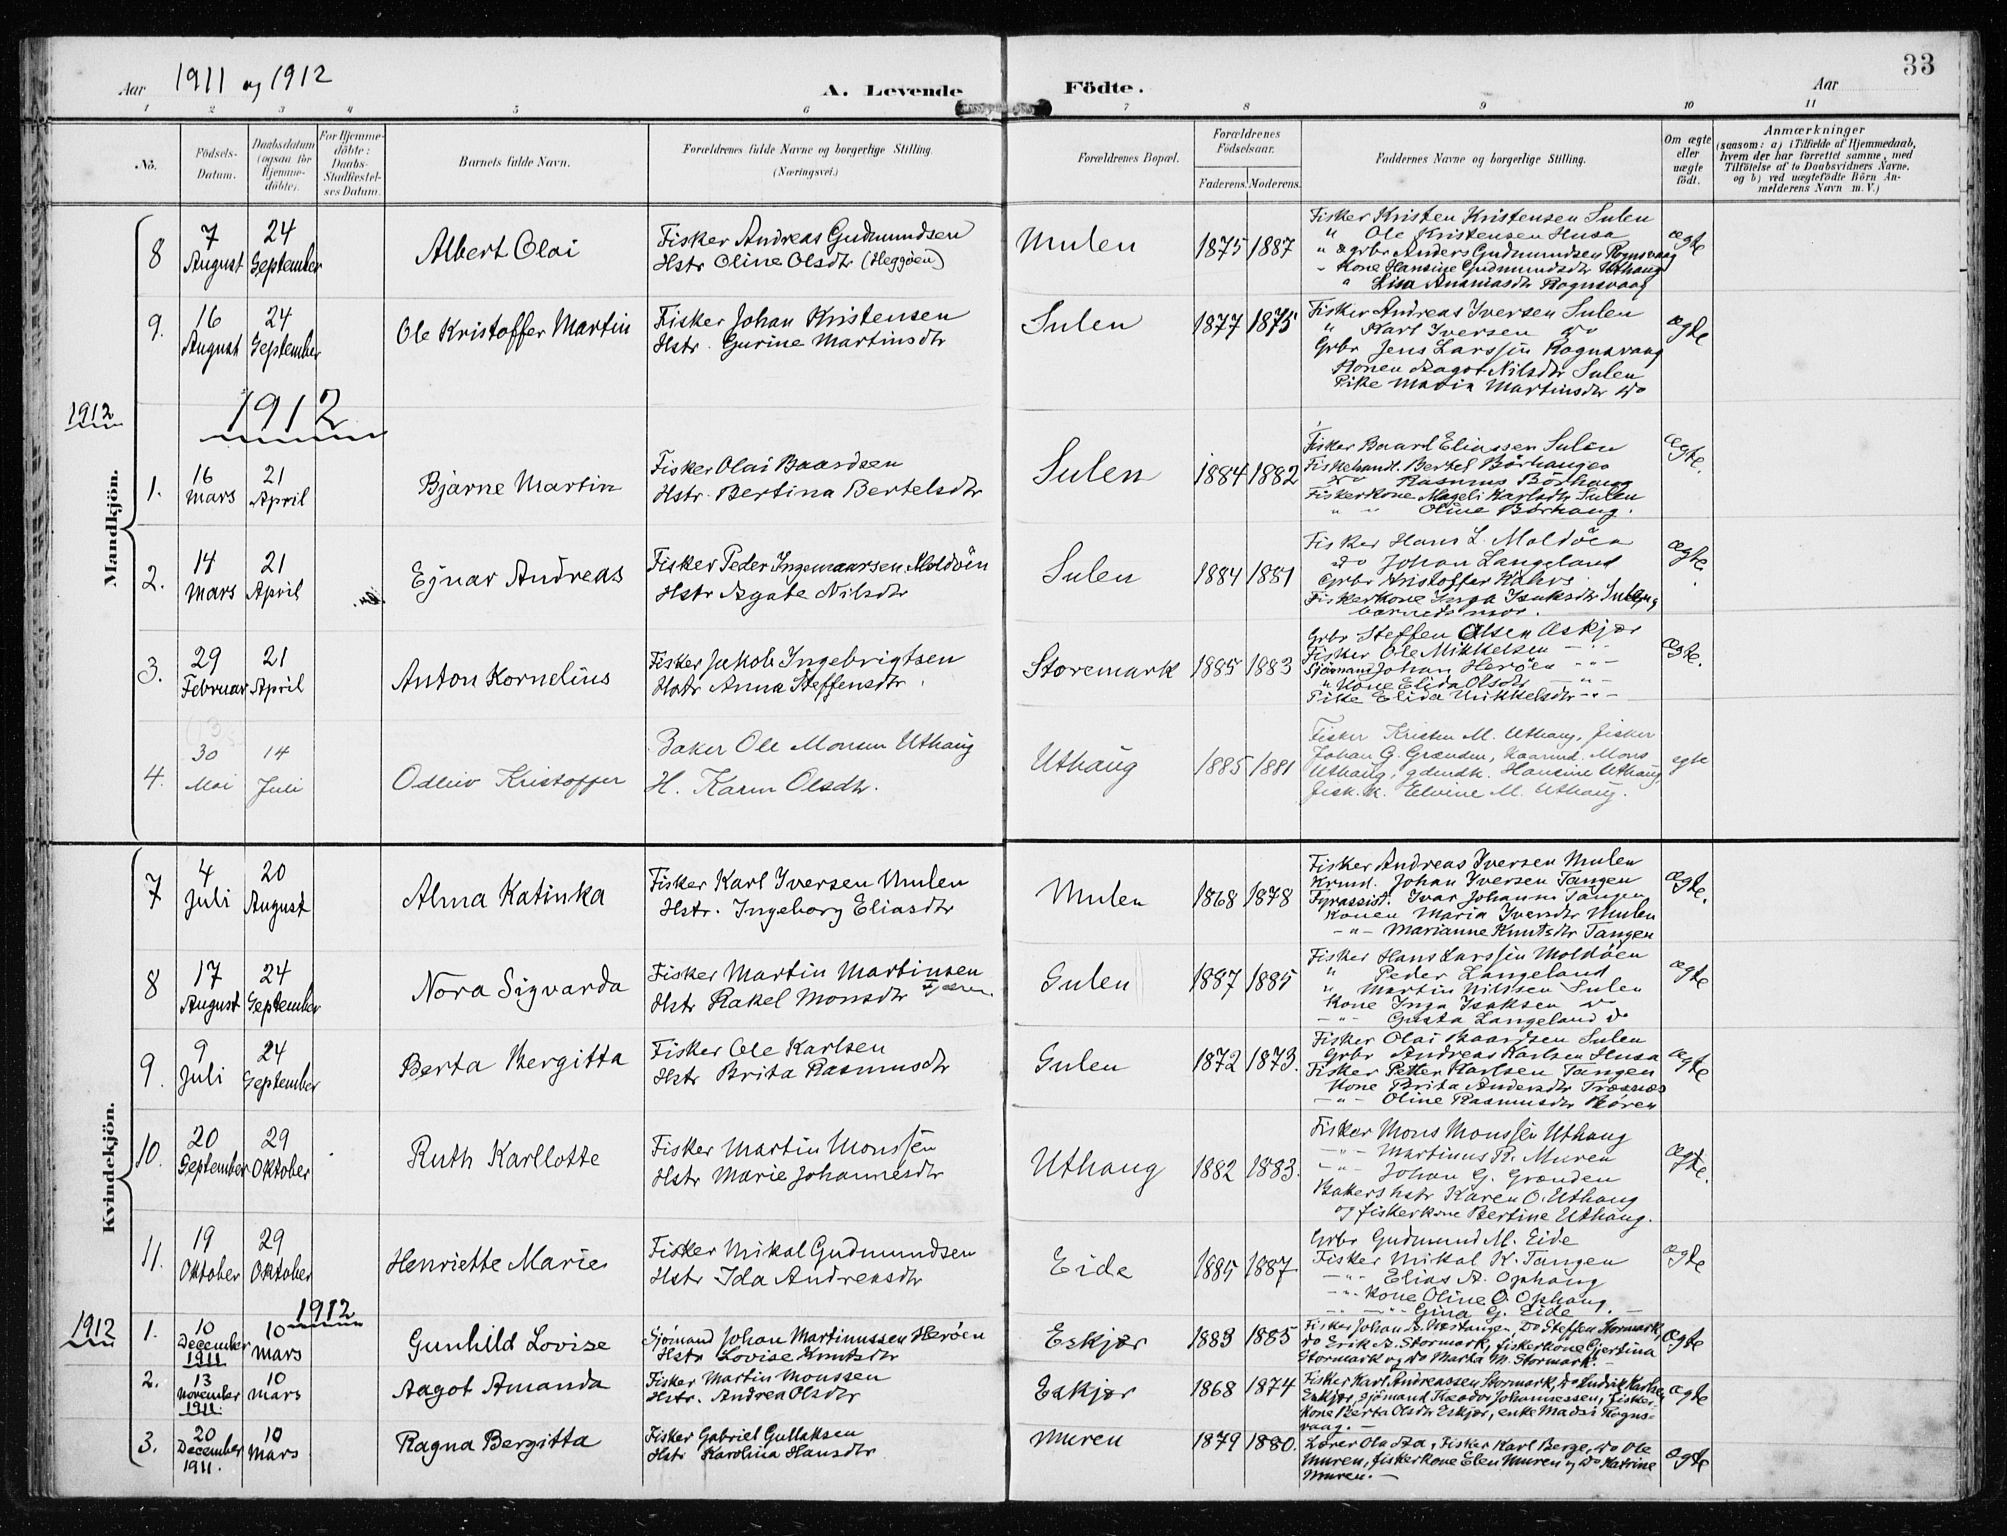 33
Aar 1911 og 1912
A. Levende Födte.
Aar
1 2 3 4 5 6 7 8 9 10 11
No.
Födsels-Datum.
Daabsdatum (ogsaa for Hjemme-döbte).
For Hjemme-döbte: Daabs-Stadfæstel-ses Datum.
Barnets fulde Navn.
Forældrenes fulde Navne og borgerlige Stilling. (Næringsvei.)
Forældrenes Bopæl.
Forældrenes Födselsaar.
Faderens. Moderens.
Faddernes Navne og borgerlige Stilling.
Om ægte eller uægte födt.
Anmærkninger
(saasom: a) i Tilfælde af Hjemmedaab,
hvem der har forrettet samme, med
Tilföielse af to Daabsvidners Navne,
og b) ved uægtefödte Börn An-
melderens Navn m. V.)
Mandkjön.
8 7 August 24 September Albert Olai
Fisker Andreas Gudmundsen
Hstr Oline Olsdtr (Heggöen)
Mulen 1875 1887
Fisker Kristen Kristensen Sulen
" Ole Kristensen Husa
" & grbr Anders Gudmundsen Rognsvaag
- Kone Hansine Gudmundsdtr Uthaug
" Lisa Ananiasdtr Rognsvaag
ægte
9. 16 August 24 September Ole Kristoffer Martin
Fisker Johan Kristensen
Hstr. Gurine Martinsdtr
Sulen 1877 1875
Fisker Andreas Iversen Sulen
" Karl Iversen do
Grbr Jens Larssen Rognsvaag
Konen Aagot Nilsdtr Sulen
Pike Maria Martinsdtr do
ægte
1912
1912
1. 16 Mars 21 April Bjarne Martin
Fisker Olai Baardsen
Hstr. Bertina Bertelsdtr
Sulen 1884 1882
Fisker Baard Eliassen Sulen
Fiskehandl. Bertel Börhaugen
do Rasmus Börhaug
Fiskerkone Mageli Karlsdtr Sulen
" " Oline Börhaug.
Ægte.
2. 14 Mars 21 April Ejnar Andreas
Fisker Peder Ingemaarsen Moldöen
Hstr Agate Nilsdtr
Sulen 1884 1881
Fisker Hans L. Moldöen
do Johan Langeland
Grbr Kristoffer
Fiskerkone Inga Isaksdtr Sulen og
barnets mor.
Ægte.
3. 29 Februar 21 April Anton Kornelius
Fisker Jakob Ingebrigtsen
Hstr Anna Steffensdtr.
Storemark 1885 1883
Grbr Steffen Olsen Eskjær
Fisker Ole Mikkelsen - " -
Sjömand Johan Heröen - " -
" Kone Elida Olsdtr - " -
Pike Elida Mikkelsdtr - " -
Ægte.
4. 30 Mai 14 Juli Odleiv Kristoffer
Baker Ole Monsen Uthaug
H. Karen Olsdtr.
Uthaug 1885 1881
Fisker Kristen M. Uthaug, fisker
Johan G. Grænden, Kaarmd. Mons
Uthaug, gdmdk. Hansine Uthaug
fisk. k. Elvine M. Uthaug.
egte
Kvindekjön.
7 4 Juli 20 August Alma Katinka
Fisker Karl Iversen Mulen
Hstr. Ingeborg Eliasdtr
Mulen 1868 1878
Fisker Andreas Iversen Mulen
Krmd. Johan Iversen Tangen
Fyrassist. Ivar Johansen Tangen
Konen Maria Iversdtr Mulen
- " - Marianne Knutsdtr Tangen
Ægte.
8 17 August 24 September Nora Sigvarda
Fisker Martin Martinsen
Hstr Rakel Monsdtr
Sulen 1887 1885
Fisker Hans Larssen Moldöen
" Peder Langeland
" Martin Nilssen Sulen
Kone Inga Isaksen do
- " - Gusta Langeland do
Ægte
9. 9 Juli 24 September Berta Bergitta
Fisker Ole Karlsen
Hstr Brita Rasmusdtr
Sulen 1872 1873.
Fisker Olai Baardsen Sulen
Grbr Andreas Karlsen Husa
Fisker Petter Karlsen Tangen
Kone Brita Andersdtr Træsnes
- " - Oline Rasmusdtr Bören
Ægte
10. 20 September 29 Oktober Ruth Karllotte
Fisker Martin Monssen
Hstr Marie Johannesdtr
Uthaug 1882 1883.
Fisker Mons Monssen Uthaug
- " - Martinus R. Muren
- " - Johan G. Grænden
Bakers hstr Karen O. Uthaug
og fiskerkone Bertine Uthaug.
Ægte.
11. 19 Oktober 29 Oktober Henriette Marie
Fisker Mikal Gudmundsen
Hstr Ida Andreasdtr
Eide 1885 1887.
Grbr Gudmund M. Eide
Fisker Mikal K. Tangen
- " - Elias A. Ophaug
- " - Kone Oline O. Ophaug
- " - " - Gina G. Eide.
Ægte
1912
1912
1. 10 December 1911 10 Mars Gunhild Lovise
Sjömand Johan Martinussen Heröen
Hstr Lovise Knutsdtr
Eskjær 1883 1885
Fisker Johan A. Vestangen, do Steffen Stormark,
do Erik A. Stormark, fiskerkone Gjertina
Stormark og do Marta M. Stormark.
Ægte
2. 13 November 1911 10 Mars Aagot Amanda
Fisker Martin Monssen
Hstr. Andrea Olsdtr
Eskjær 1868 1874
Fisker Karl Andreassen Stormark, do Ludvig Karlsen
Eskjær, sjömand Theodor Johannessen, fisker-
kone Berta Olsdtr Eskjær, enke Madsi Rogns-
vaag. -
ægte
3. 20 December 1911. 10 Mars Ragna Bergitta
Fisker Gabriel Gullaksen
Hstr Karolina Hansdtr
Muren 1879 1880.
Lærer Ola Aa, Fisker Karl Berge, do Ole
Muren, fiskerkone Elen Muren og do Katrine
Muren. -
Ægte